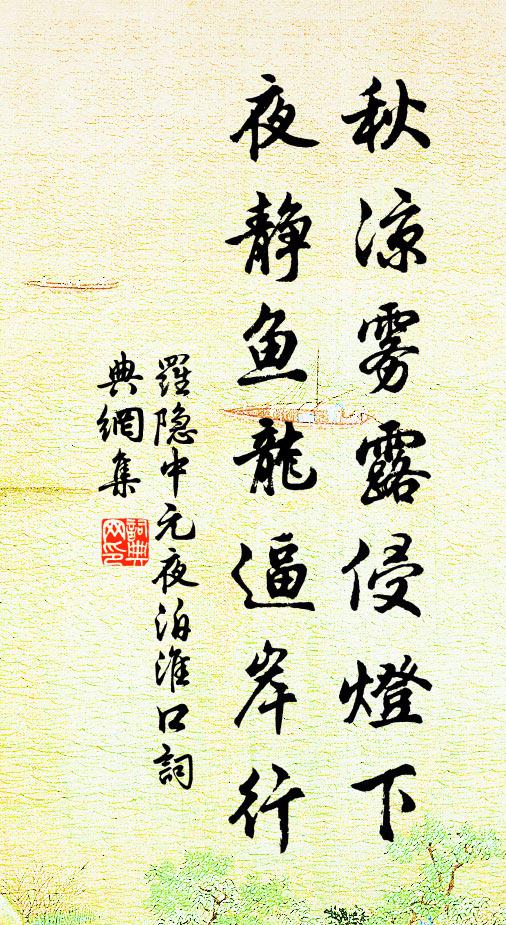 秋涼雾露侵燈下
夜静鱼龍逼岸行
羅隐中元夜泊淮口詞
典網集
詞典网印